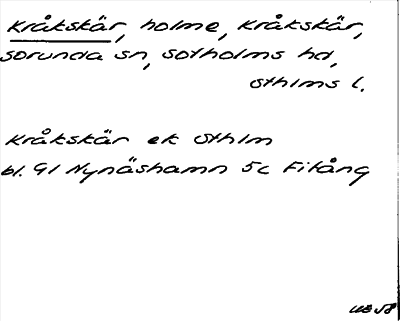 Kråkskär, holme, Kråkskär,
Sorunda sn, Sotholms hd,
Sthlms l.
Kråkskär ek Sthlm
bl. 91 Nynäshamn 5c Fifång